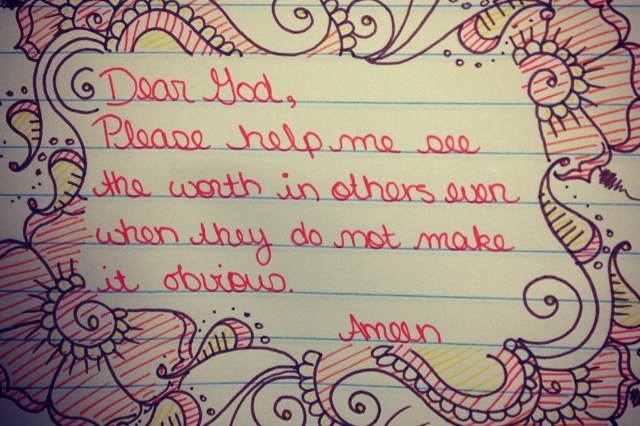 Dear God,
Please help me see
the worth in others even
when they do not make
it obvious.
Amen